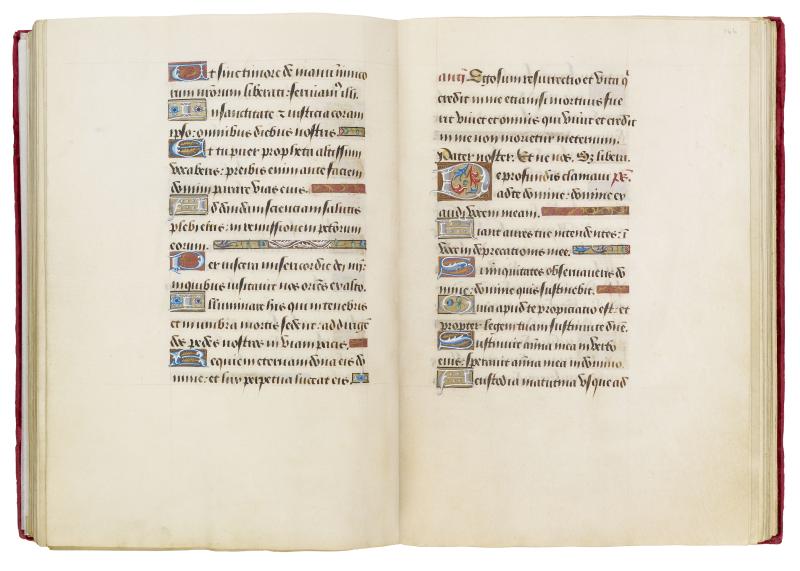 Ut sine timore de manu inimico
rum nr̄orum liberati: serviam⁹ illi.
In sanctitate ⁊ iusticia coram
ipso: omnibus diebus nostris.
Et tu puer propheta altissimi
vocaberis: preibis enim ante faciem
domini parare vias eius.
Ad dandam scienciam salutis
plebi eius: in remissionem pctōrum
eorum.
Per viscera misericordie dei nr̄i:
in quibus visitavit nos oriēs ex alto.
Illuminare his qui in tenebris
et in umbra mortis sedent: ad dirigē
dos pedes nostros in viam pacis.
Requiem eternam dona eis do
mine: et lux perpetua luceat eis.
144
añ. Ego sum resurrectio et vita q̄
credit in me etiam si mortuus fue
rit vivet et omnis qui vivit et credit
in me non morietur in eternum.
Pater noster. Et ne nos. S; libera.
De profundis clamavi ps.
ad te domine: domine ex
audi vocem meam.
Fiant aures tue intendentes: ī
vocem deprecationis mee.
Si iniquitates observaveris do
mine: domine quis sustinebit.
Quia apud te propiciatio est: et
propter legem tuam sustinui te dn̄e.
Sustinuit aīma mea in verbo
eius: speravit aīma mea in domino.
A custodia matutina usque ad